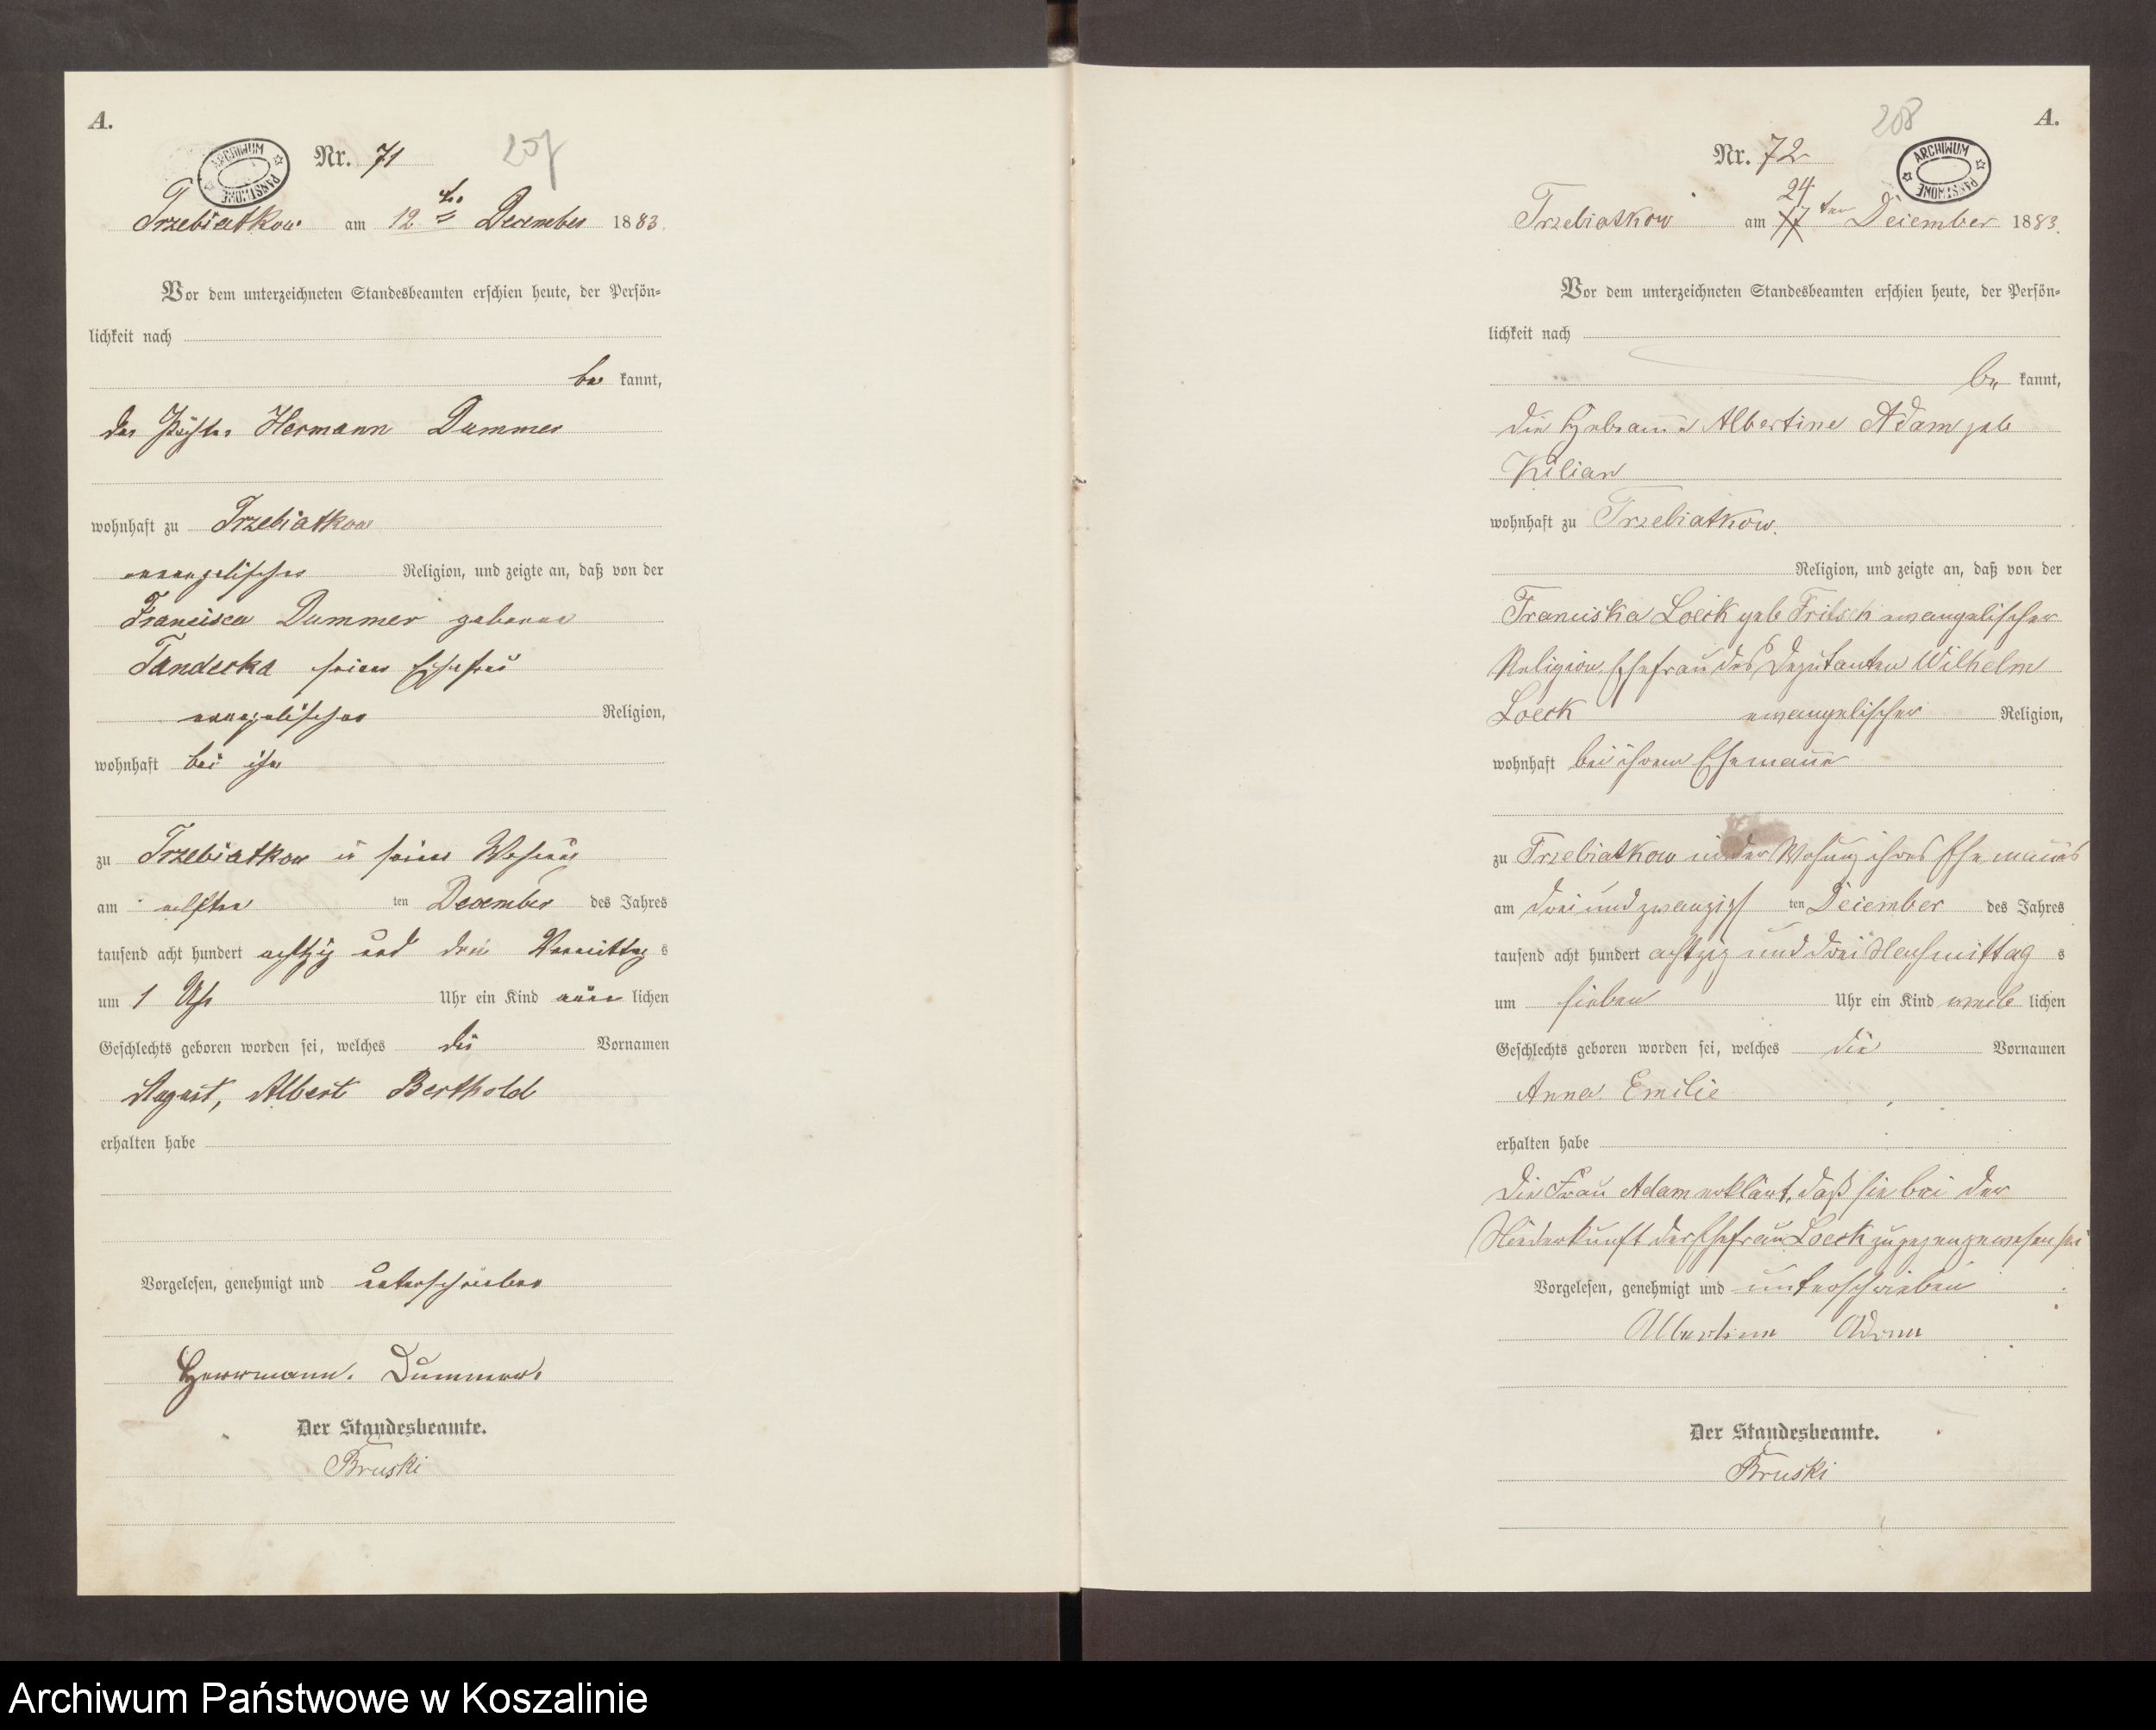 A.
ARCHIWUM PAŃSTWOWE
Nr. 71
207
Trzebiatkow am 12 ten December 1883.
Vor dem unterzeichneten Standesbeamten erschien heute, der Persön=
lichkeit nach
be kannt,
der Pächter Hermann Dummer
wohnhaft zu Trzebiatkow
evangelischer Religion, und zeigte an, daß von der
Francisca Dummer geborene
Tandecka seiner Ehefrau
evangelischer Religion,
wohnhaft bei ihm
zu Trzebiatkow in seiner
am elften ten December des Jahres
tausend acht hundert achtzig und drei Vormittag s
um 1 Uhr Uhr ein Kind männ lichen
Geschlechts geboren worden sei, welches die Vornamen
August, Albert Berthold
erhalten habe
Vorgelesen, genehmigt und unterschrieben
Herrmann. Dummer.
Der Standesbeamte.
Bruski
A.
208
ARCHIWUM PAŃSTWOWE
Nr. 72
24
Trzebiatkow am 17 ten Deiember 1883.
Vor dem unterzeichneten Standesbeamten erschien heute, der Persön=
lichkeit nach
be kannt,
die Hebamme Albertine Adam geb
Kilian
wohnhaft zu Trzebiatkow.
Religion, und zeigte an, daß von der
Franciska Loeck geb Fritsch evangelischer
Religion, Ehefrau des Deputanten Wilhelm
Loeck evangelischer Religion,
wohnhaft bei ihrem Ehemann
zu Trzebiatkow in der Wohung ihres Ehemanns
am drei und zwanzigs ten Deiember des Jahres
tausend acht hundert achtzig und drei Nachmittag s
um sieben Uhr ein Kind weib lichen
Geschlechts geboren worden sei, welches die Vornamen
Anna Emilie
erhalten habe
Die Frau Adam erklärt, daß sie bei der
Niederkunft der Ehefrau Loeck zugegen gewesen sei
Vorgelesen, genehmigt und unterschrieben
Albertine Adam
Der Standesbeamte.
Bruski
Archiwum Państwowe w Koszalinie